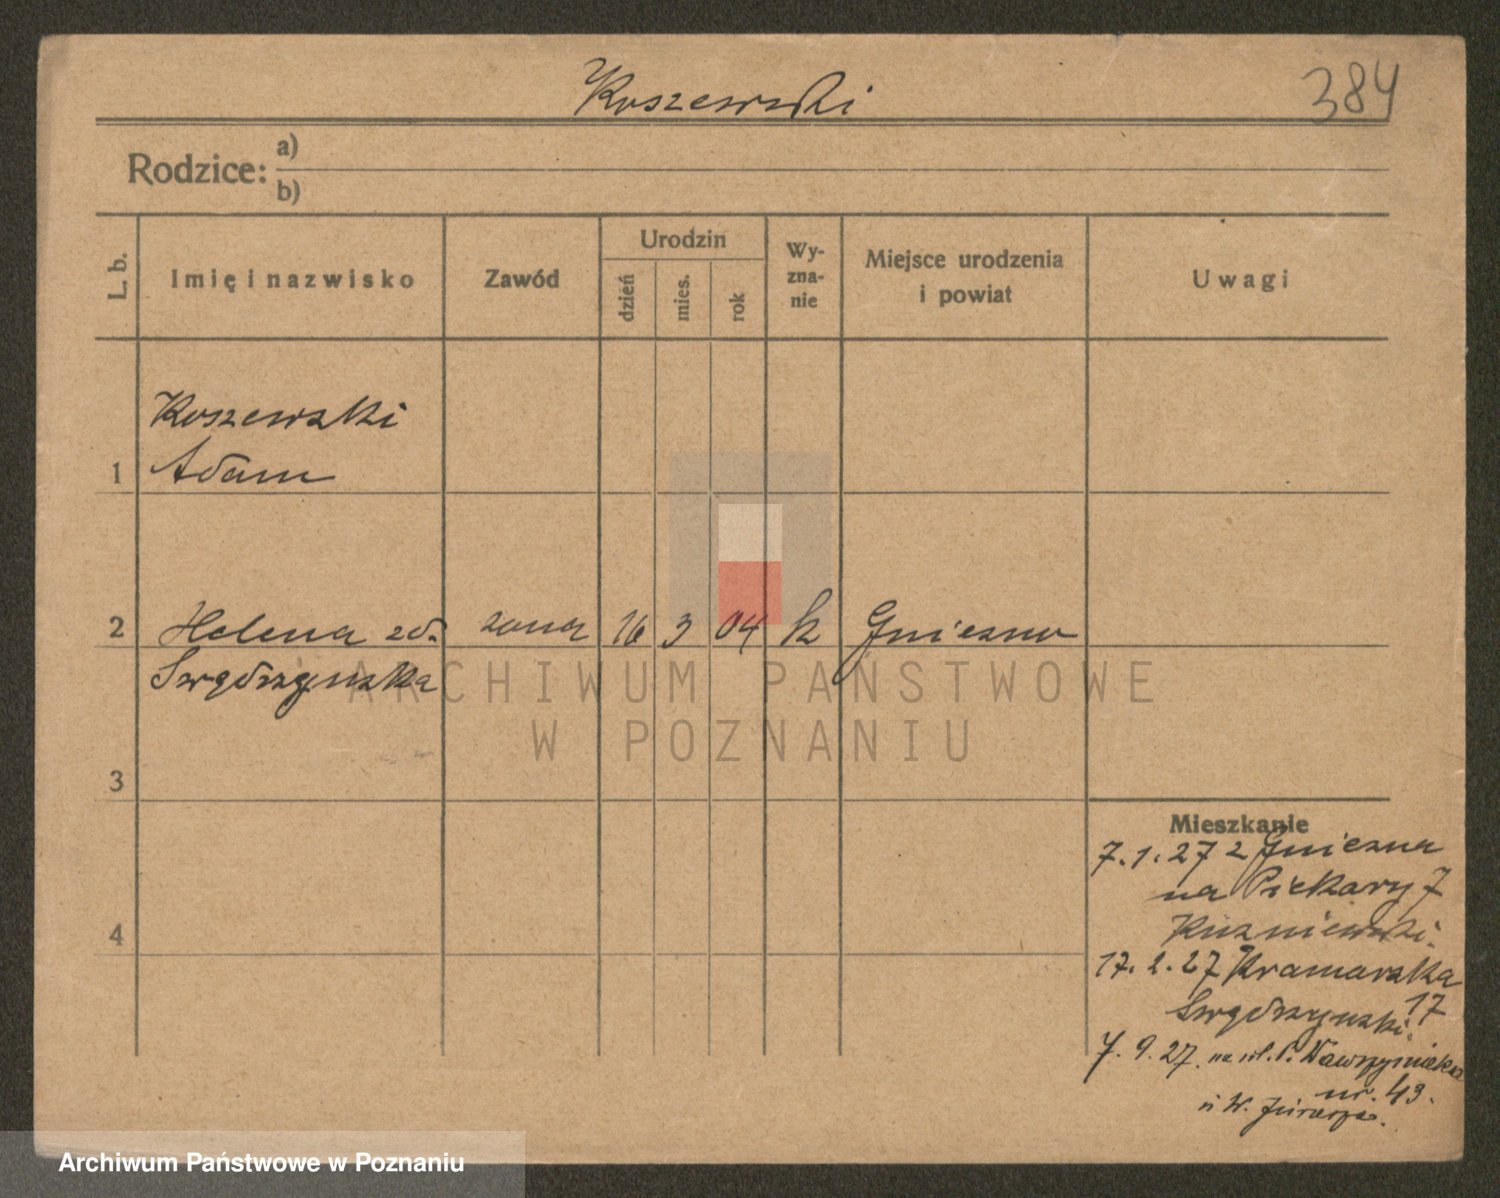 Koszewski
384
Rodzice: a)
b)
L. b.
Imię i nazwisko
Zawód
Urodzin
dzień
mies.
rok
Wy-
zna-
nie
Miejsce urodzenia
i powiat
Uwagi
Koszewski
1 Adam
2 Helena zd. żona 16 3 04 k Gniezno
3
4
Mieszkanie
7.1.27 z Gniezna
na Piekary 7
Kuzniewski.
17.2.27 Kramarska
17
7.9.27. na ul. P. Wawrzyniaka
nr. 43.
u W.
ARCHIWUM PAŃSTWOWE
W POZNANIU
Archiwum Państwowe w Poznaniu